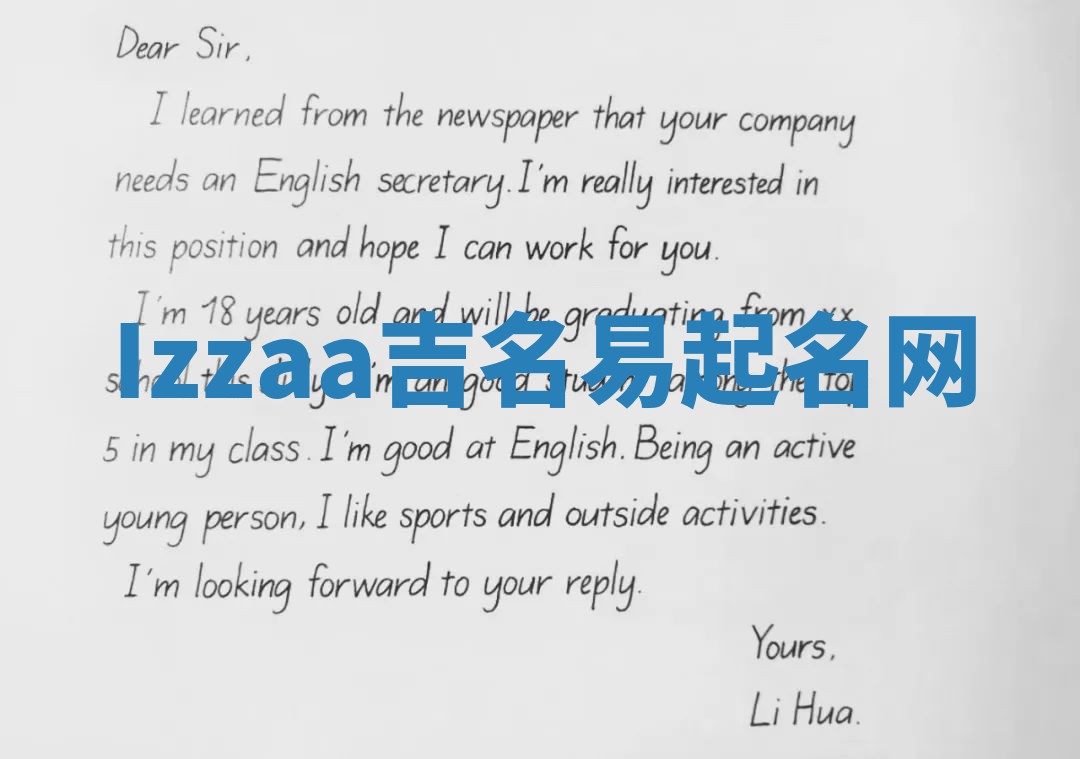 Dear Sir,
I learned from the newspaper that your company
needs an English secretary. I'm really interested in
this position and hope I can work for you.
I'm 18 years old and will be graduating from xx
school this July. I'm an good student among the top
lzzaa吉名易起名网
5 in my class. I'm good at English. Being an active
young person, I like sports and outside activities.
I'm looking forward to your reply.
Yours,
Li Hua.